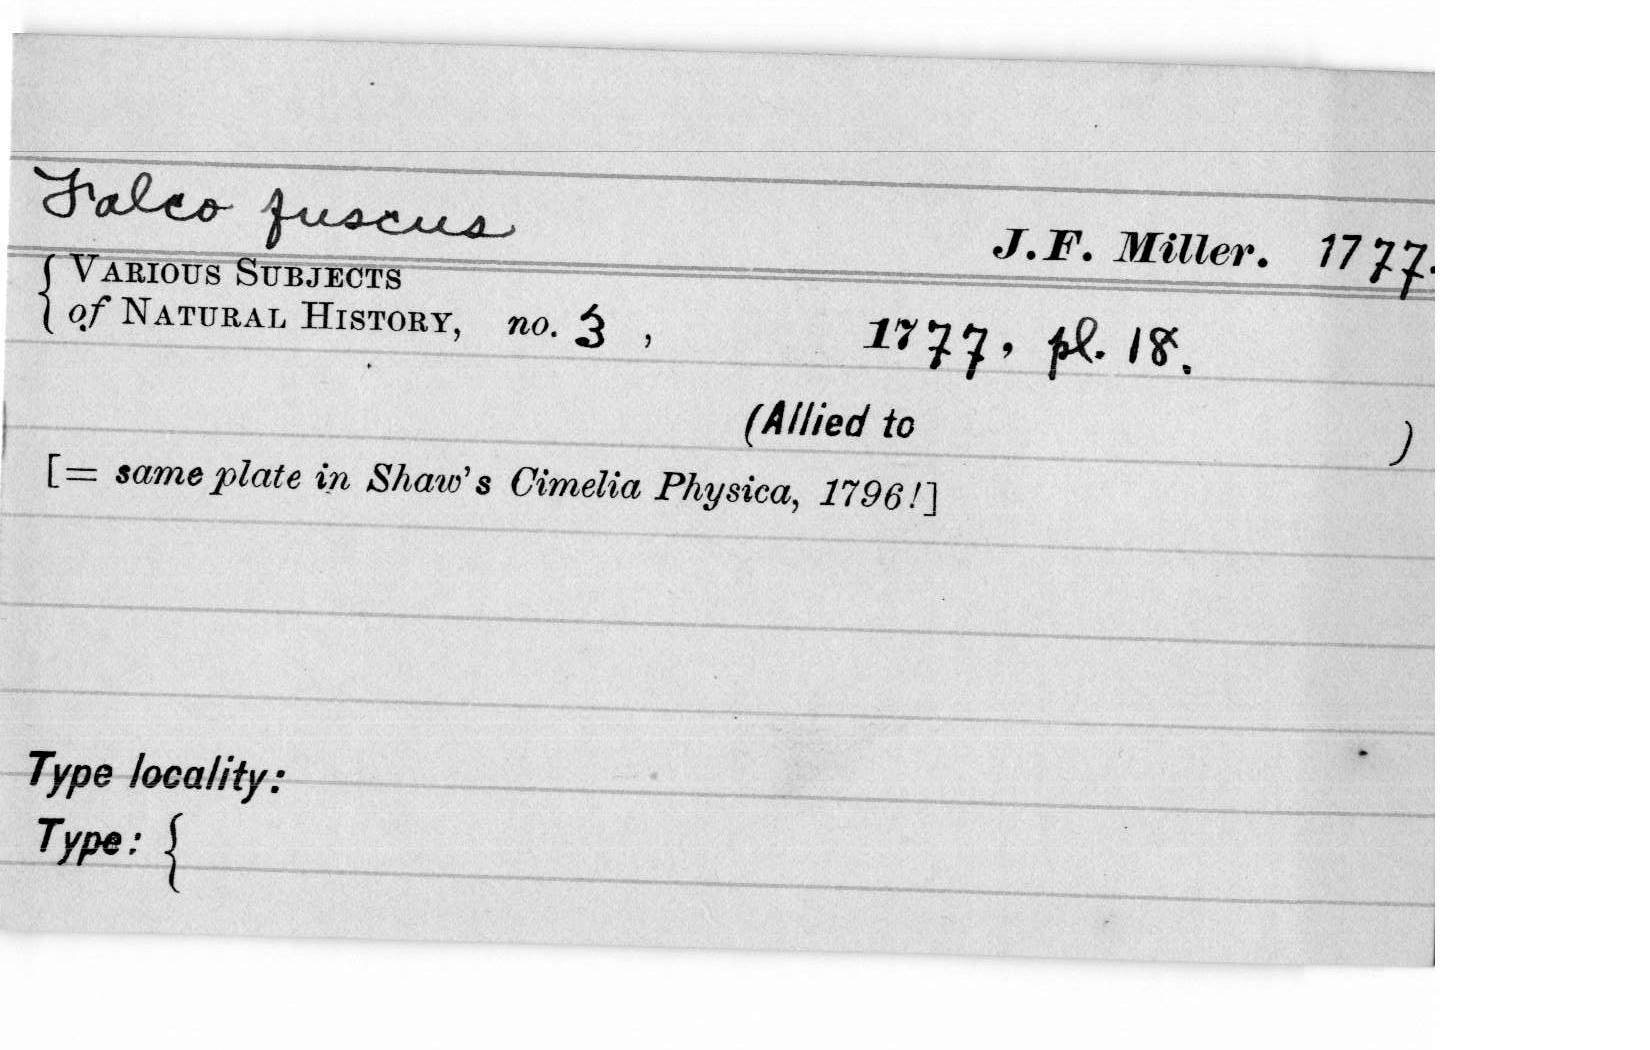 Falco fuscus
J. F. Miller. 1777.
{ VARIOUS SUBJECTS
of NATURAL HISTORY, no. 3 , 1777, pl. 18.
(Allied to )
[= same plate in Shaw's Cimelia Physica, 1796!]
Type locality:
Type: {